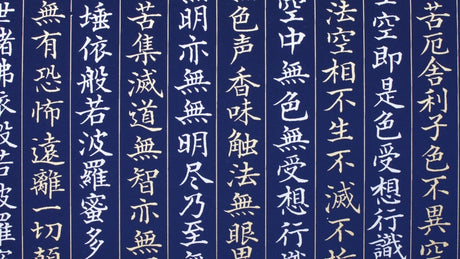 苦厄舎利子色不異空
空即是色受想行識
法空相不生不滅不垢
空中無色無受想行識
色声香味触法無眼界
明亦無無明尽乃至無
苦集滅道無智亦無
埵依般若波羅蜜多
無有恐怖遠離一切顛
世諸佛依般若波羅